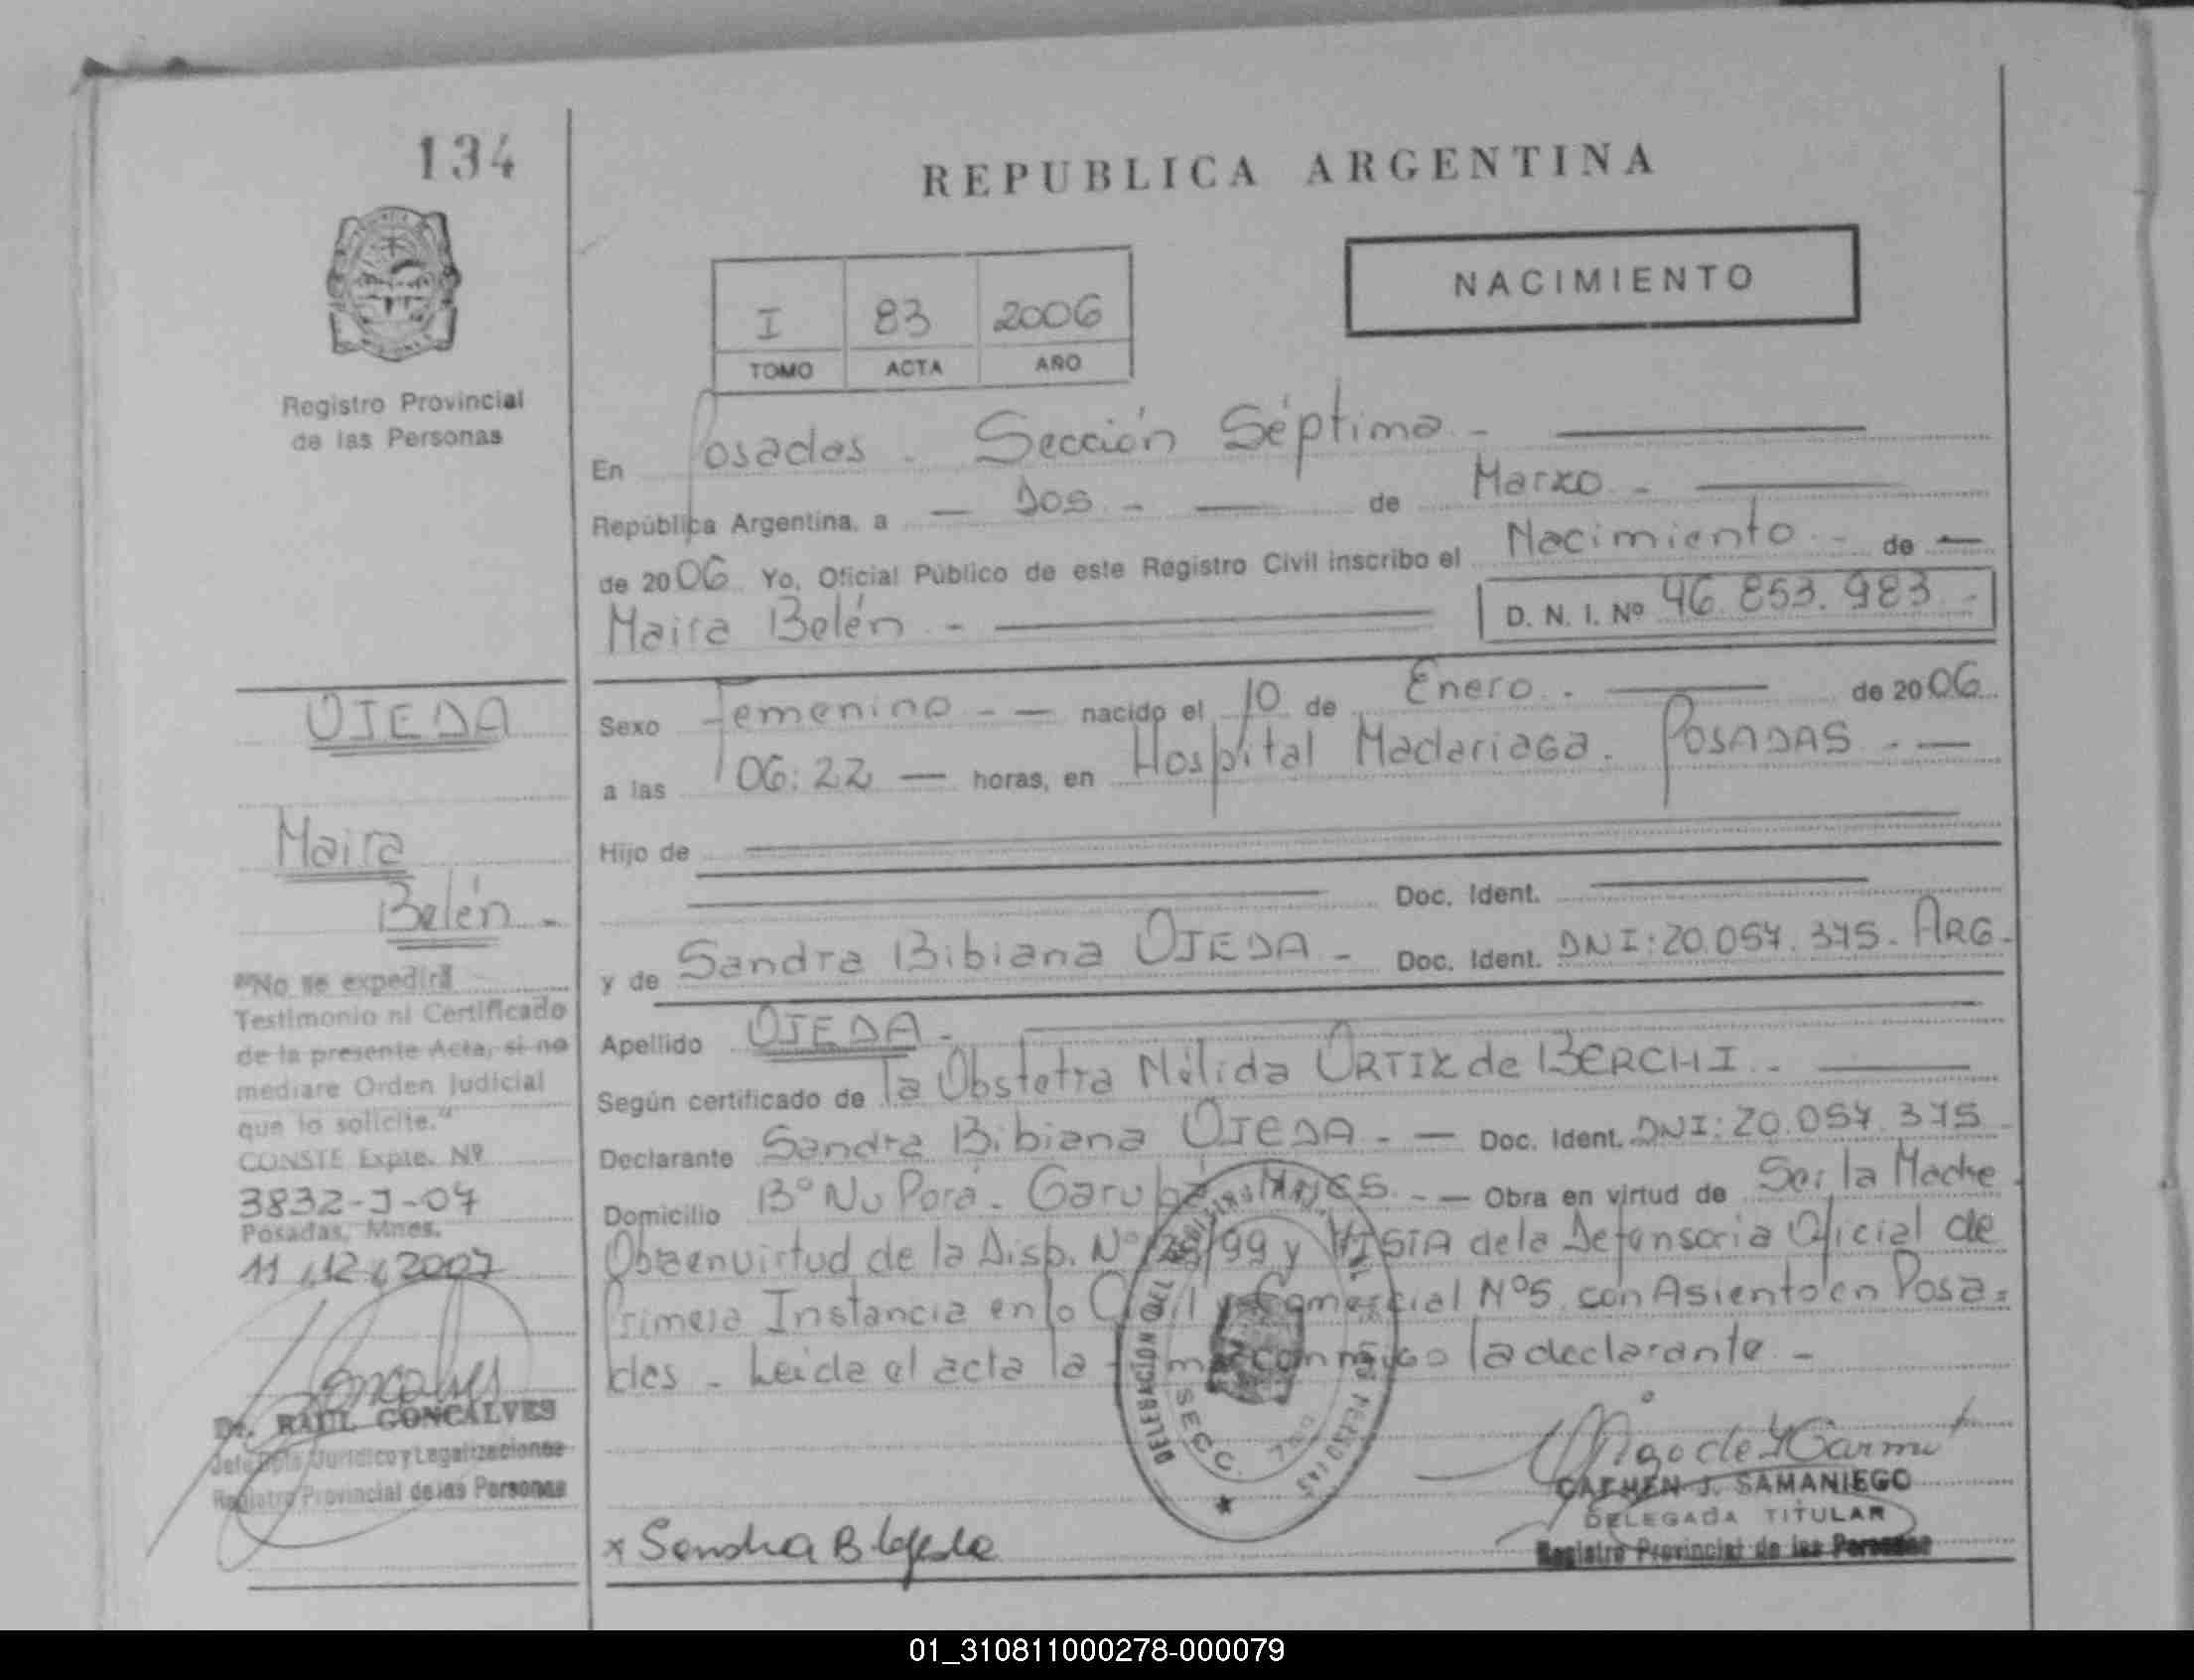 134
REPUBLICA ARGENTINA
NACIMIENTO
I 83 2006
TOMO ACTA AÑO
Registro Provincial
de las Personas
En Posadas - Sección Séptima -
República Argentina, a - Dos - de Marzo -
de 2006 Yo, Oficial Público de este Registro Civil inscribo el Nacimiento - de -
Maira Belén - D. N. I. Nº 46.853.983 -
OJEDA
Maira
Belén -
Sexo Femenino - - nacido el 10 de Enero - de 2006
a las 06:22 - horas, en Hospital Madariaga. POSADAS - -
Hijo de
Doc. Ident.
y de Sandra Bibiana OJEDA - Doc. Ident. DNI: 20.057.375. ARG.
Apellido OJEDA -
Según certificado de la Obstetra Nélida ORTIZ de BERCHI -
Declarante Sandra Bibiana OJEDA - - Doc. Ident. DNI: 20.057.375
Domicilio Bº Ñu Porá - Garupá MNES - - Obra en virtud de Ser la Madre.
Obra en virtud de la Disp. Nº /99 y VISTA de la Defensoria Oficial de
Primera Instancia en lo Civil y Comercial Nº 5 con Asiento en Posa=
das - Leida el acta la conmigo la declarante -
"No se expedirá
Testimonio ni Certificado
de la presente Acta, si no
mediare Orden Judicial
que lo solicite."
CONSTE Expte. Nº
3832-J-07
Posadas, Mnes.
11/12/2007
Goncalves
Dr. RAUL GONCALVES
Jefe Dpto. Jurídico y Legalizaciones
Registro Provincial de las Personas
DELEGACION DEL
SECC.
PERSONAS
CARMEN J. SAMANIEGO
DELEGADA TITULAR
Registro Provincial de las Personas
x Sandra B Ojeda
01_310811000278-000079